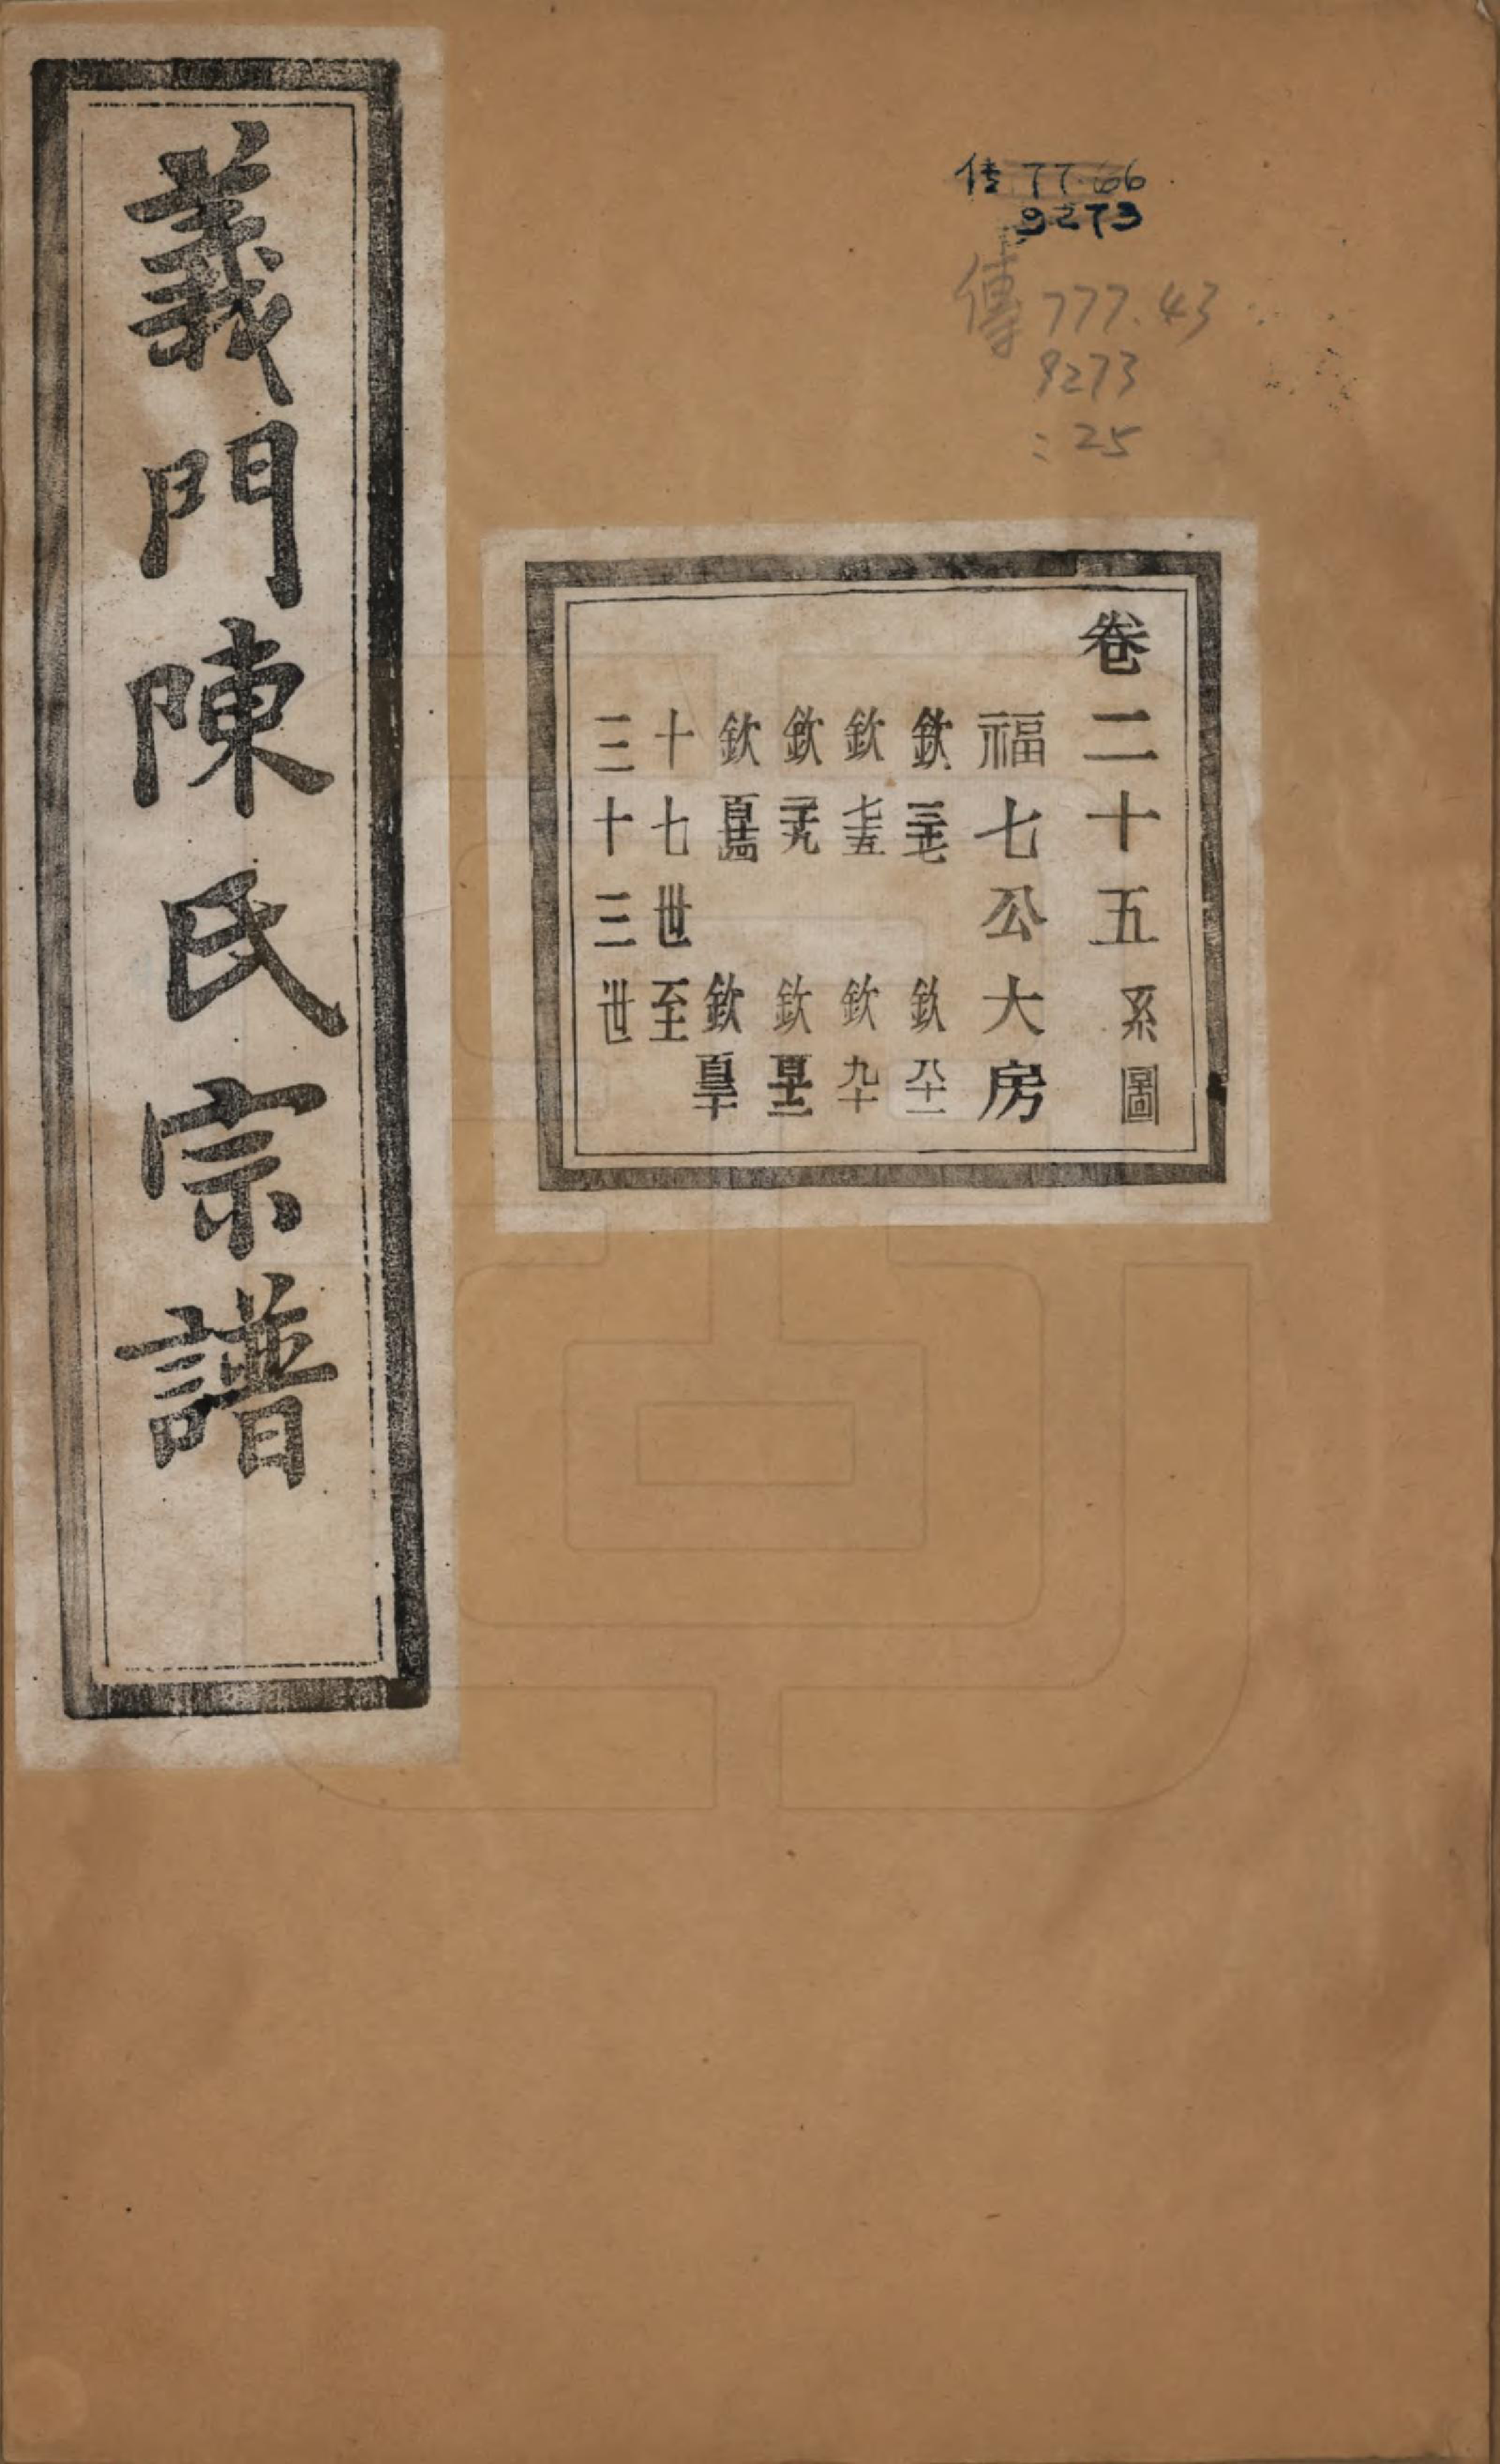 義門陳氏宗譜
传 77.66
9273
傳 777.43
9273
:25
卷二十五系圖
福七公大房
欽 欽八十一
欽七十五 欽九十
欽 欽
欽 欽
十七世至
三十三世